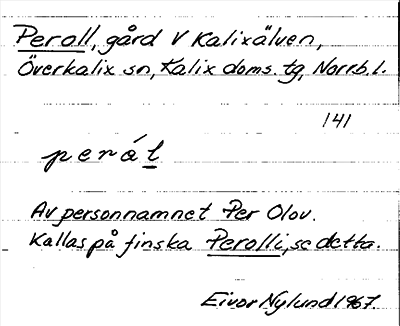 Peroll, gård V Kalixälven,
Överkalix sn, Kalix doms. tg, Norrb. l.
141
perá̵l
Av personnamnet Per Olov.
Kallas på finska Perolli, se detta.
Eivor Nylund 1967.